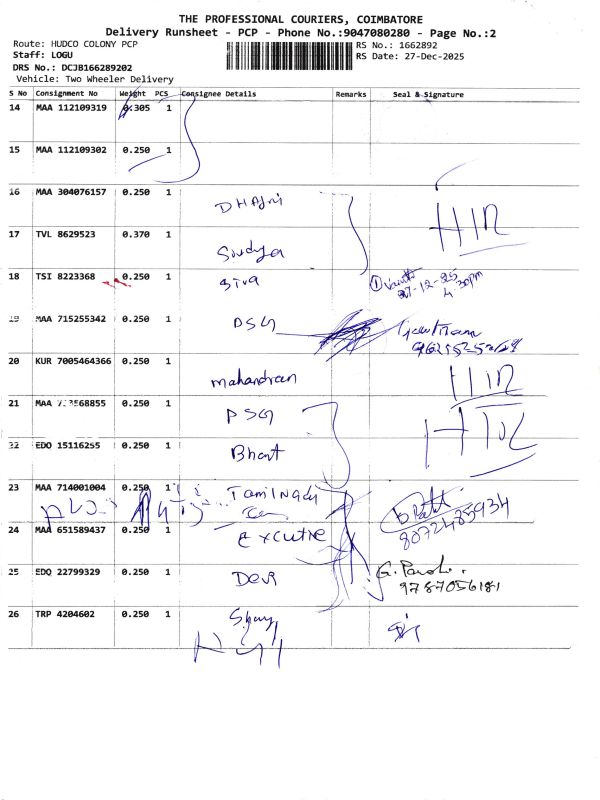 THE PROFESSIONAL COURIERS, COIMBATORE
Delivery Runsheet - PCP - Phone No.:9047080280 - Page No.:2
Route: HUDCO COLONY PCP
Staff: LOGU
DRS No.: DCJB166289202
Vehicle: Two Wheeler Delivery
RS No.: 1662892
RS Date: 27-Dec-2025
S No Consignment No Weight PCS Consignee Details Remarks Seal & Signature
14 MAA 112109319 0.305 1
15 MAA 112109302 0.250 1
16 MAA 304076157 0.250 1
17 TVL 8629523 0.370 1
18 TSI 8223368 0.250 1 Siva
27-12-25
4.30pm
19 MAA 715255342 0.250 1 PSG
20 KUR 7005464366 0.250 1 mahandran
21 MAA 568855 0.250 1 PSG
22 EDO 15116255 0.250 1 Bharat
23 MAA 714001004 0.250 1 Tamilnadu
8072485934
24 MAA 651589437 0.250 1 Excutive
25 EDQ 22799329 0.250 1 Devi
9787056181
26 TRP 4204602 0.250 1